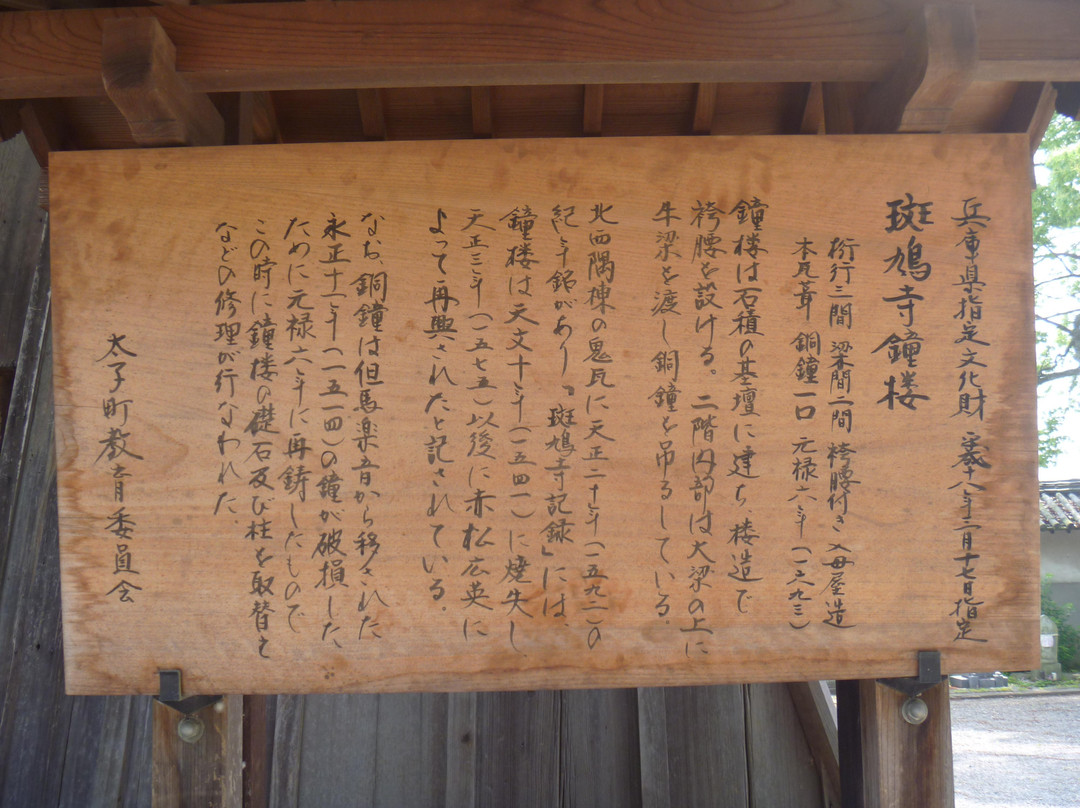 兵庫県指定文化財 平成十八年三月十七日指定
斑鳩寺鐘楼
桁行三間 梁間二間 袴腰付き 入母屋造
本瓦葺 銅鐘一口 元禄六年(一六九三)
鐘楼は石積の基壇に建ち、楼造で
袴腰を設ける。二階内部は大梁の上に
牛梁を渡し銅鐘を吊るしている。
北西隅棟の鬼瓦に天正二十年(一五九二)の
紀年銘があり『斑鳩寺記録』には、
鐘楼は天文十年(一五四一)に焼失し
天正三年(一五七五)以後に赤松広英に
よって再興されたと記されている。
なお、銅鐘は但馬楽音から移された
永正十一年(一五一四)の鐘が破損した
ために元禄六年に再鋳したもので
この時に鐘楼の礎石及び柱を取替え
などの修理が行なわれた。
太子町教育委員会